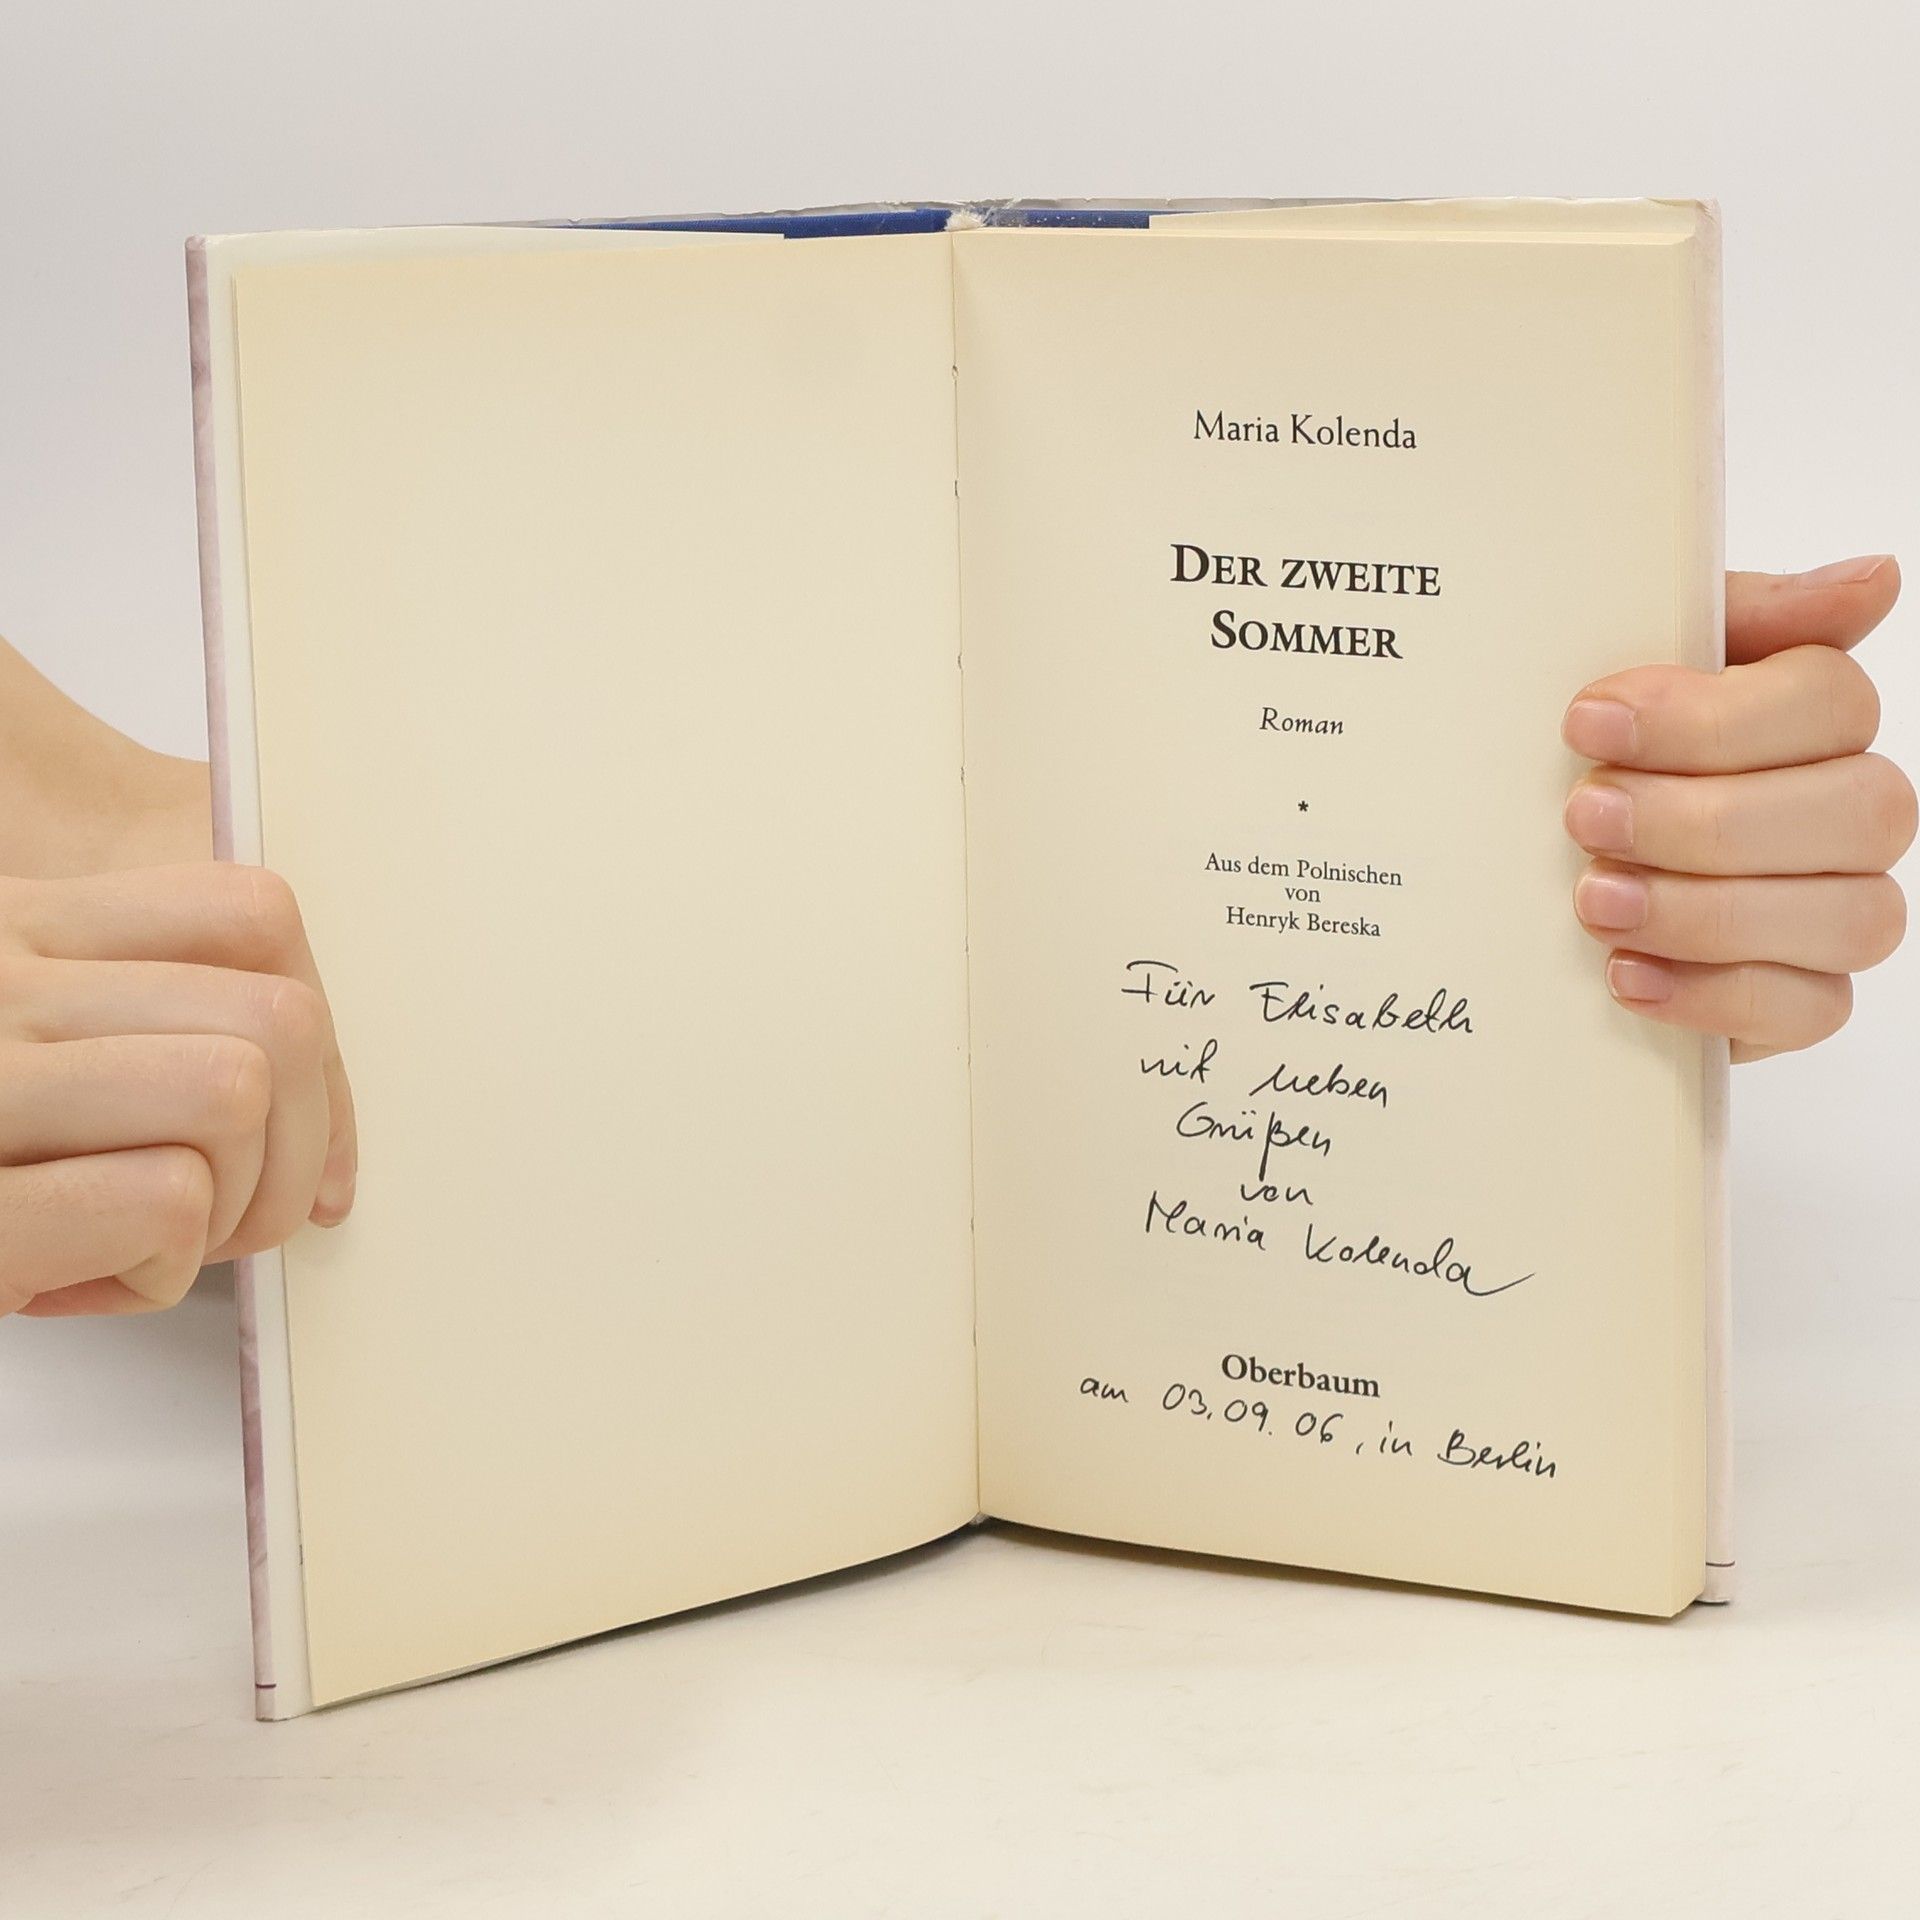 Maria Kolenda
DER ZWEITE
SOMMER
Roman
*
Aus dem Polnischen
von
Henryk Bereska
Für Elisabeth
mit lieben
Grüßen
von
Maria Kolenda
Oberbaum
am 03.09.06, in Berlin